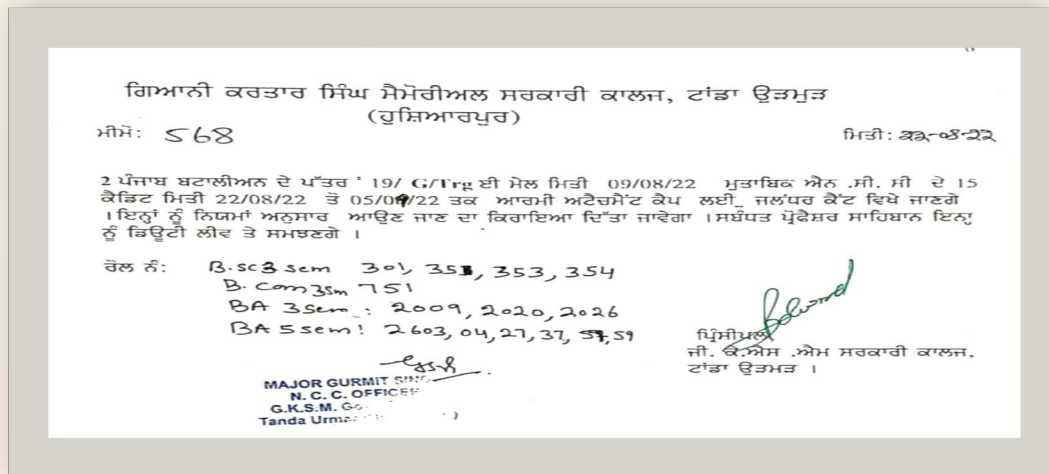 ਗਿਆਨੀ ਕਰਤਾਰ ਸਿੰਘ ਮੈਮੋਰੀਅਲ ਸਰਕਾਰੀ ਕਾਲਜ, ਟਾਂਡਾ ਉੜਮੁੜ
(ਹੁਸ਼ਿਆਰਪੁਰ)
ਮੀਮੋ: 568 ਮਿਤੀ: 22-08-22
2 ਪੰਜਾਬ ਬਟਾਲੀਅਨ ਦੇ ਪੱਤਰ ' 19/ G/Trg ਈ ਮੇਲ ਮਿਤੀ 09/08/22 ਮੁਤਾਬਿਕ ਐਨ .ਸੀ. ਸੀ ਦੇ 15
ਕੈਡਿਟ ਮਿਤੀ 22/08/22 ਤੋਂ 05/09/22 ਤਕ ਆਰਮੀ ਅਟੈਚਮੈਂਟ ਕੈਪ ਲਈ ਜਲੰਧਰ ਕੈਂਟ ਵਿਖੇ ਜਾਣਗੇ
। ਇਨ੍ਹਾਂ ਨੂੰ ਨਿਯਮਾਂ ਅਨੁਸਾਰ ਆਉਣ ਜਾਣ ਦਾ ਕਿਰਾਇਆ ਦਿੱਤਾ ਜਾਵੇਗਾ । ਸਬੰਧਤ ਪ੍ਰੋਫੈਸ਼ਰ ਸਾਹਿਬਾਨ ਇਨ੍ਹਾ
ਨੂੰ ਡਿਊਟੀ ਲੀਵ ਤੇ ਸਮਝਣਗੇ ।
ਰੋਲ ਨੰ: B.sc 3 sem 301, 351, 353, 354
B. Com 3sm 751
BA 3 sem : 2009, 2020, 2026
BA 5 sem: 2603, 04, 27, 37, 57, 59
ਪ੍ਰਿੰਸੀਪਲ
ਜੀ. ਕੇ.ਐਸ .ਐਮ ਸਰਕਾਰੀ ਕਾਲਜ,
ਟਾਂਡਾ ਉੜਮੜ ।
MAJOR GURMIT
N. C. C. OFFICER
G.K.S.M.
Tanda